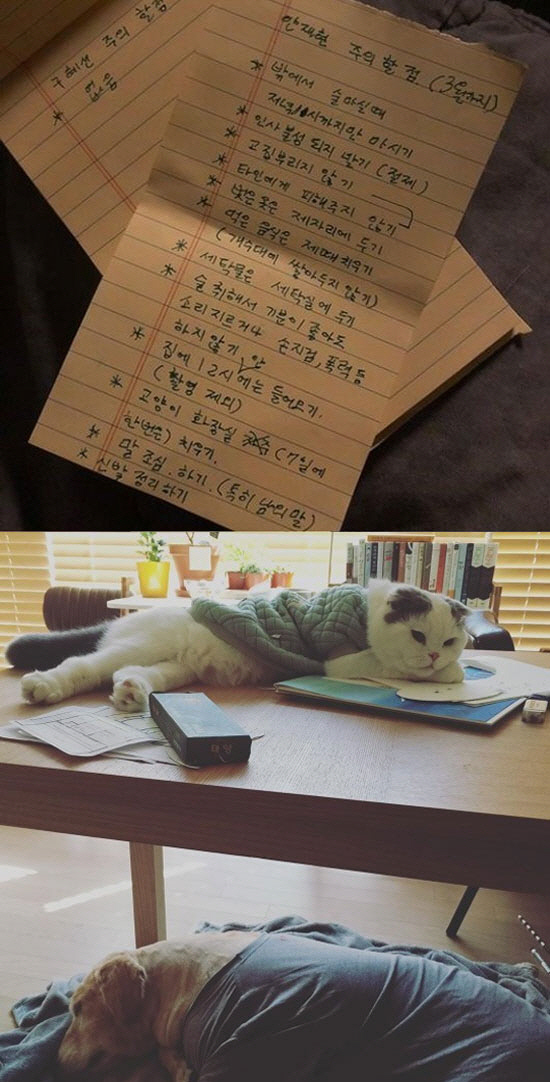 구혜선 주의 할점
* 없음
안재현 주의 할 점 (3월까지)
* 밖에서 술마실때
저녁 10시까지만 마시기
* 인사불성 되지 말기 (절제)
* 고집부리지 않기
* 타인에게 피해주지 않기
* 벗은 옷은 제자리에 두기
* 먹은 음식은 제때 치우기
(개수대에 쌓아두지 않기)
* 세탁물은 세탁실에 두기
* 술 취해서 기분이 좋아도
소리지르거나 손찌검, 폭력 등
하지 않기
* 집에 12시 안에는 들어오기.
(촬영 제외)
* 고양이 화장실 (7일에
한번은) 치우기.
* 말 조심. 하기. (특히 남의 말)
* 신발 정리하기
태양